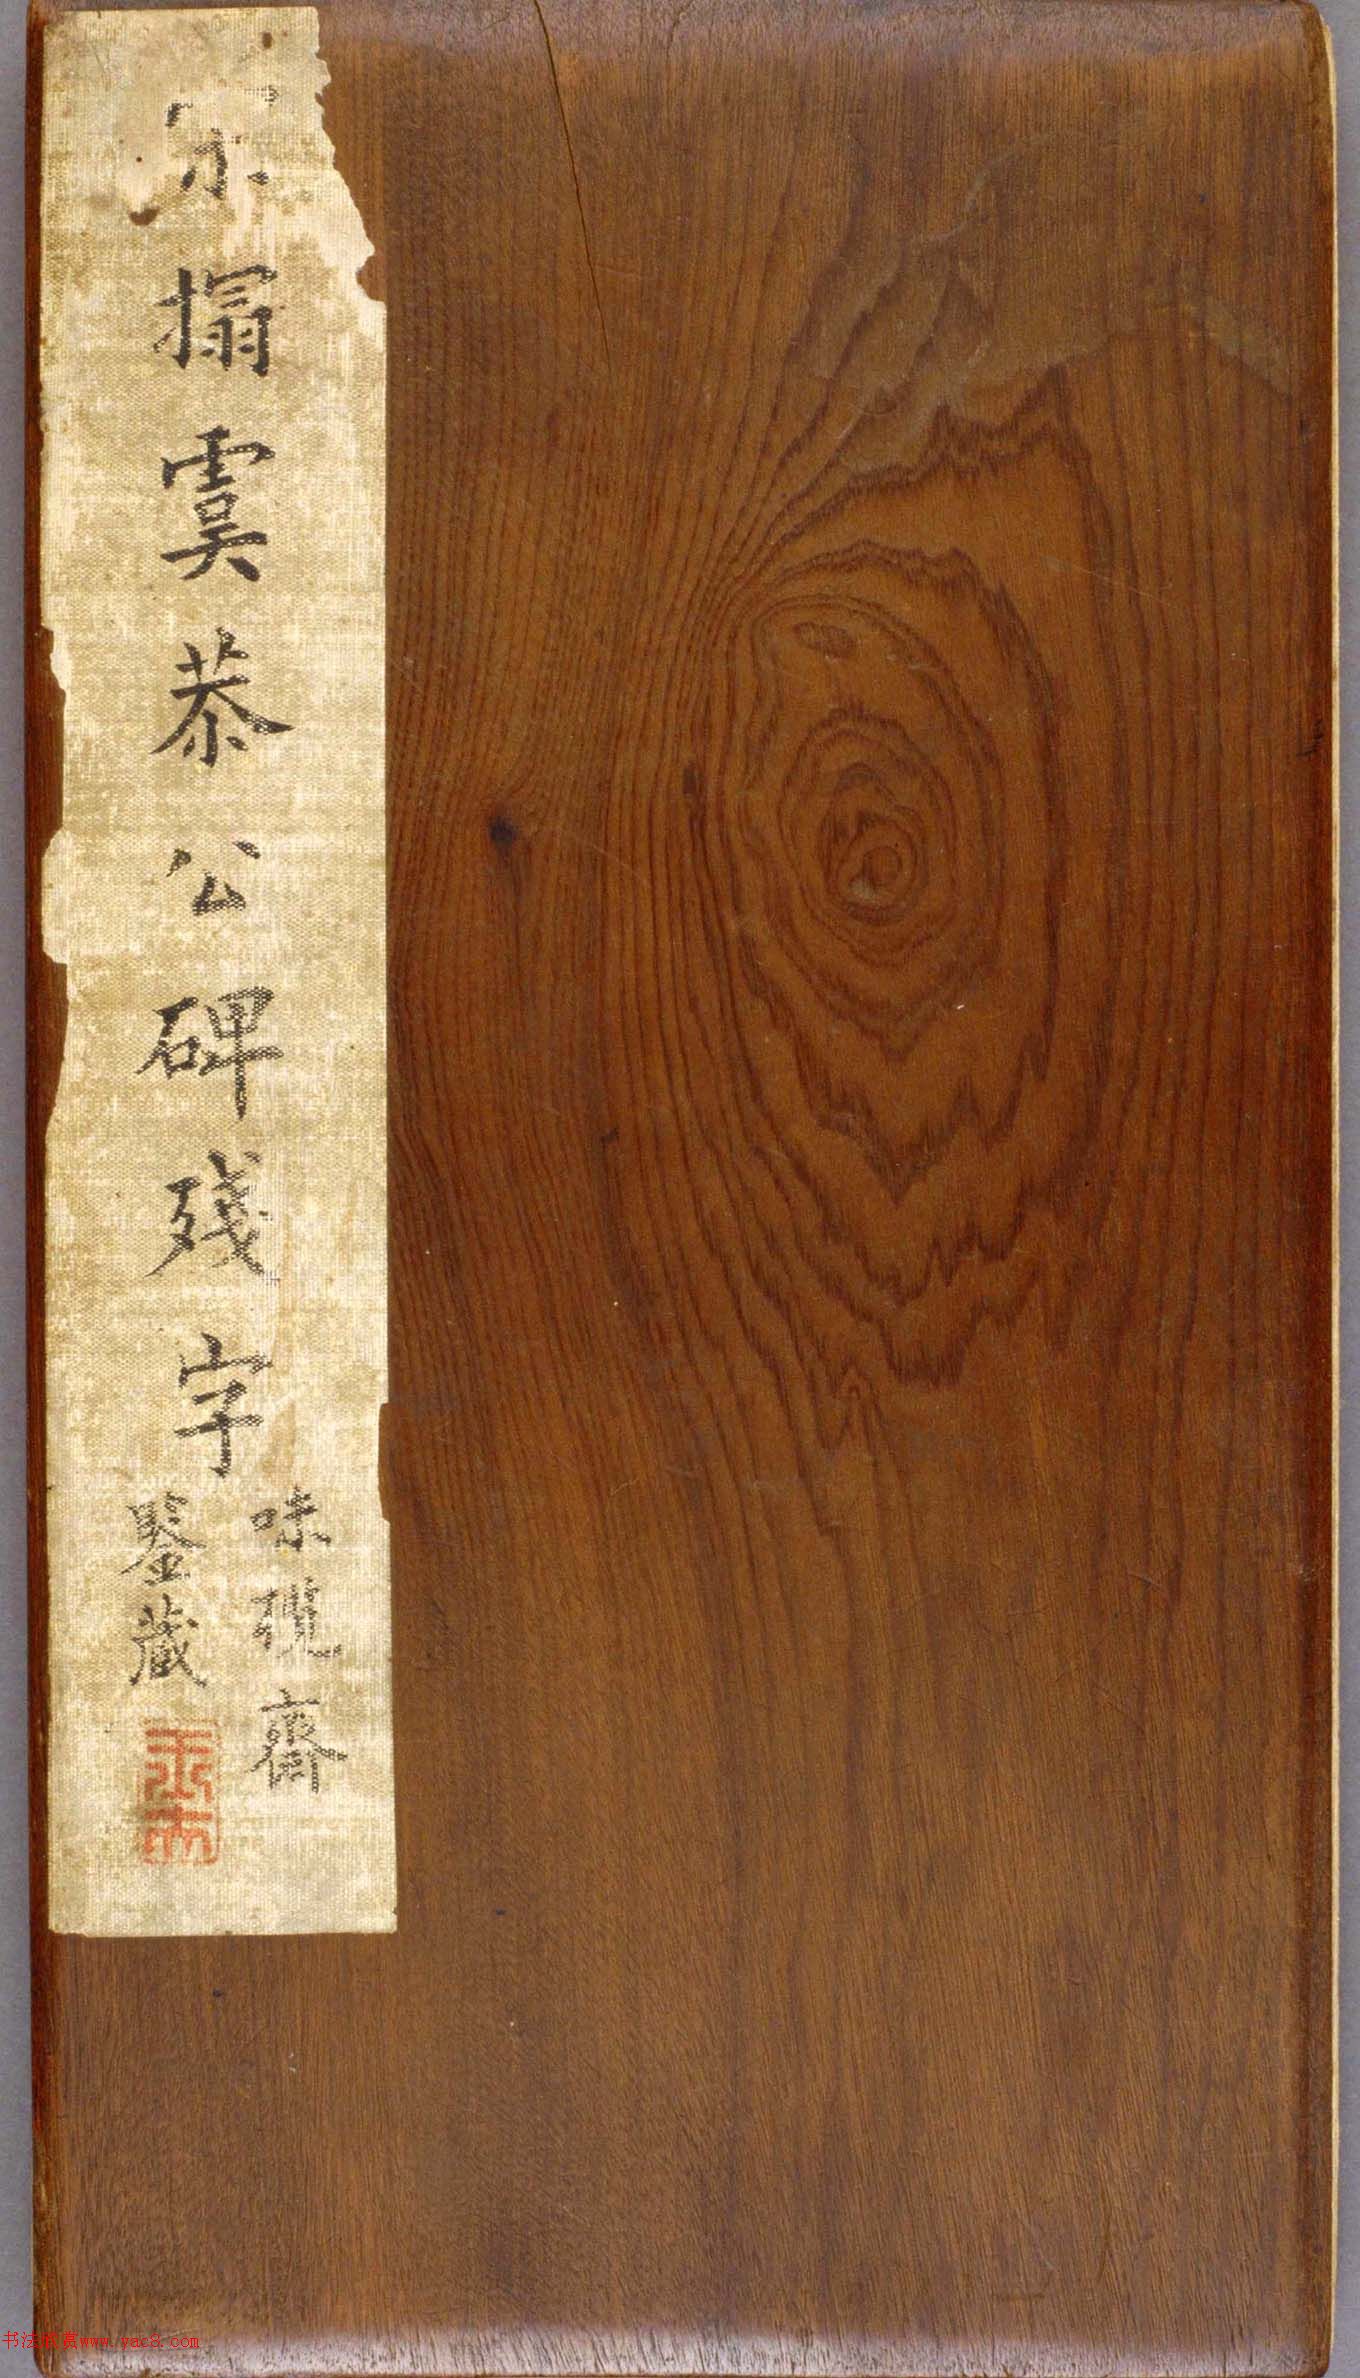 宋搨虞恭公碑殘字
味欖齋
鍳藏
书法欣赏www.yac8.com